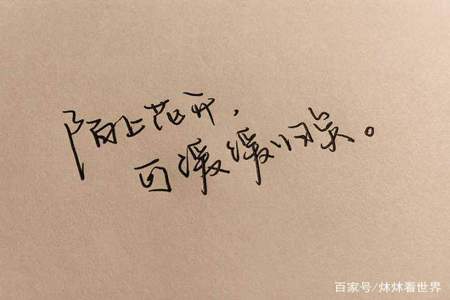 陌上花开，
可缓缓归矣。
百家号/炑炑看世界